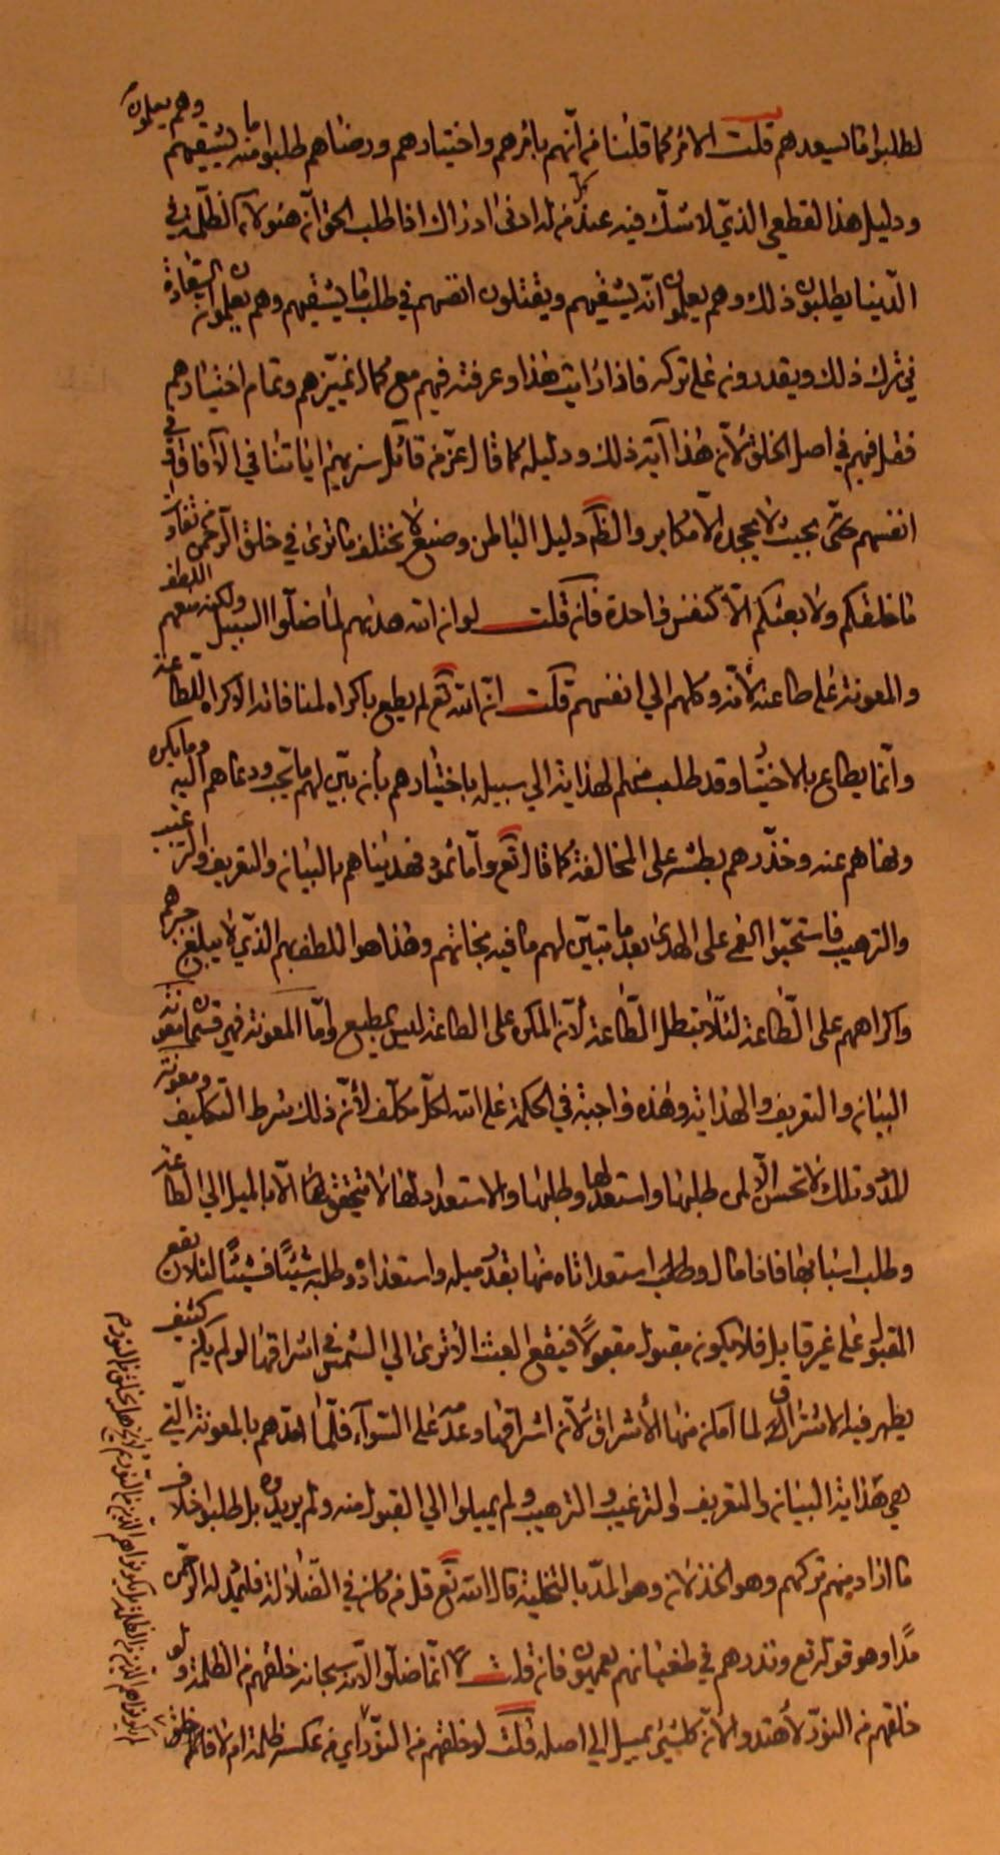 لطلبوا ما يسعدهم قلت الامر كما قلنا من انهم بامرهم واختيارهم ورضاهم طلبوا منه ما يشقيهم وهم يعلمون
ودليل هذا القطعي الذي لا شك فيه عند كل من له ادنى ادراك اذا طلب الحق ان هؤلاء الظلمة في
الدنيا يطلبون ذلك وهم يعلمون انه يشقيهم ويقتلون انفسهم في طلب ما يشقيهم وهم يعلمون ان السعادة
في ترك ذلك ويقدرون على تركه فاذا رايت هذا وعرفته فيهم مع كمال تمييزهم وتمام اختيارهم
فقل فيهم في اصل الخلق لان هذا آية ذلك ودليله كما قال عز من قائل سنريهم اياتنا في الآفاق وفي
انفسهم حتى بحيث لا يجحده الا مكابر والظاهر دليل الباطن وصنع لا يختلف ما ترى في خلق الرحمن من تفاوت
ما خلقكم ولا بعثكم الا كنفس واحدة فان قلت لو ان الله هديهم لما ضلوا السبيل ولكنه منعهم اللطف
والمعونة على طاعته لانه وكلهم الى انفسهم قلت ان الله تع لم يطع باكراه لمنافاته الاكراه للطاعة
وانما يطاع بالاختيار وقد طلب منهم الهداية الى سبيله باختيارهم بأن بين لهم ما يحب ودعاهم اليه وما يكره
ونهاهم عنه وحذرهم بطشه على المخالفة كما قال تع واما ثمود فهديناهم بالبيان والتعريف والترغيب
والترهيب فاستحبوا العمى على الهدى بعد ما تبين لهم ما فيه نجاتهم وهذا هو اللطف بهم الذي لا يبلغ جبرهم
واكراههم على الطاعة لئلا تبطل الطاعة لأن المكره على الطاعة ليس بمطيع واما المعونة فهي قسمان معونة
البيان والتعريف والهداية وهذه واجبة في الحكمة على الله لكل مكلف لأن ذلك شرط التكليف ومعونة
للمدد وتلك لا تحسن الا لمن طلبها واستعد لها وطلبها والاستعداد لها لا يتحقق لها الا بالميل الى الطاعة
وطلب اسبابها فاذا مال وطلب استعد اتاه منها بقدر ميله واستعداده وطلبه شيئا فشيئا لئلا يقع
المقبول على غير قابل فلا يكون مقبول مقبولا فيقع العبث الا ترى الى الشمس في اشراقها لو لم يكن كثيف
يظهر فيه الاشراق لما امكن منها الأشراق لان اشراقها وعدمه على السواء فلما امدهم بالمعونة التي
هي هداية البيان والتعريف والترغيب والترهيب ولم يميلوا الى القبول منه ولم يريدوه بل طلبوا خلاف
ما اراد منهم تركهم وهو الخذلان وهو المد بالتخلية قال الله تع قل من كان في الضلالة فليمدد له الرحمن
مدا وهو قوله تع ونذرهم في طغيانهم يعمهون فان قلت انما ضلوا لانه سبحانه خلقهم من الظلمة ولو
خلقهم من النور لأهتدوا لان كل شيء يميل الى اصله قلت لو خلقهم من النور اي من عكسه ظلمة ام لا فان